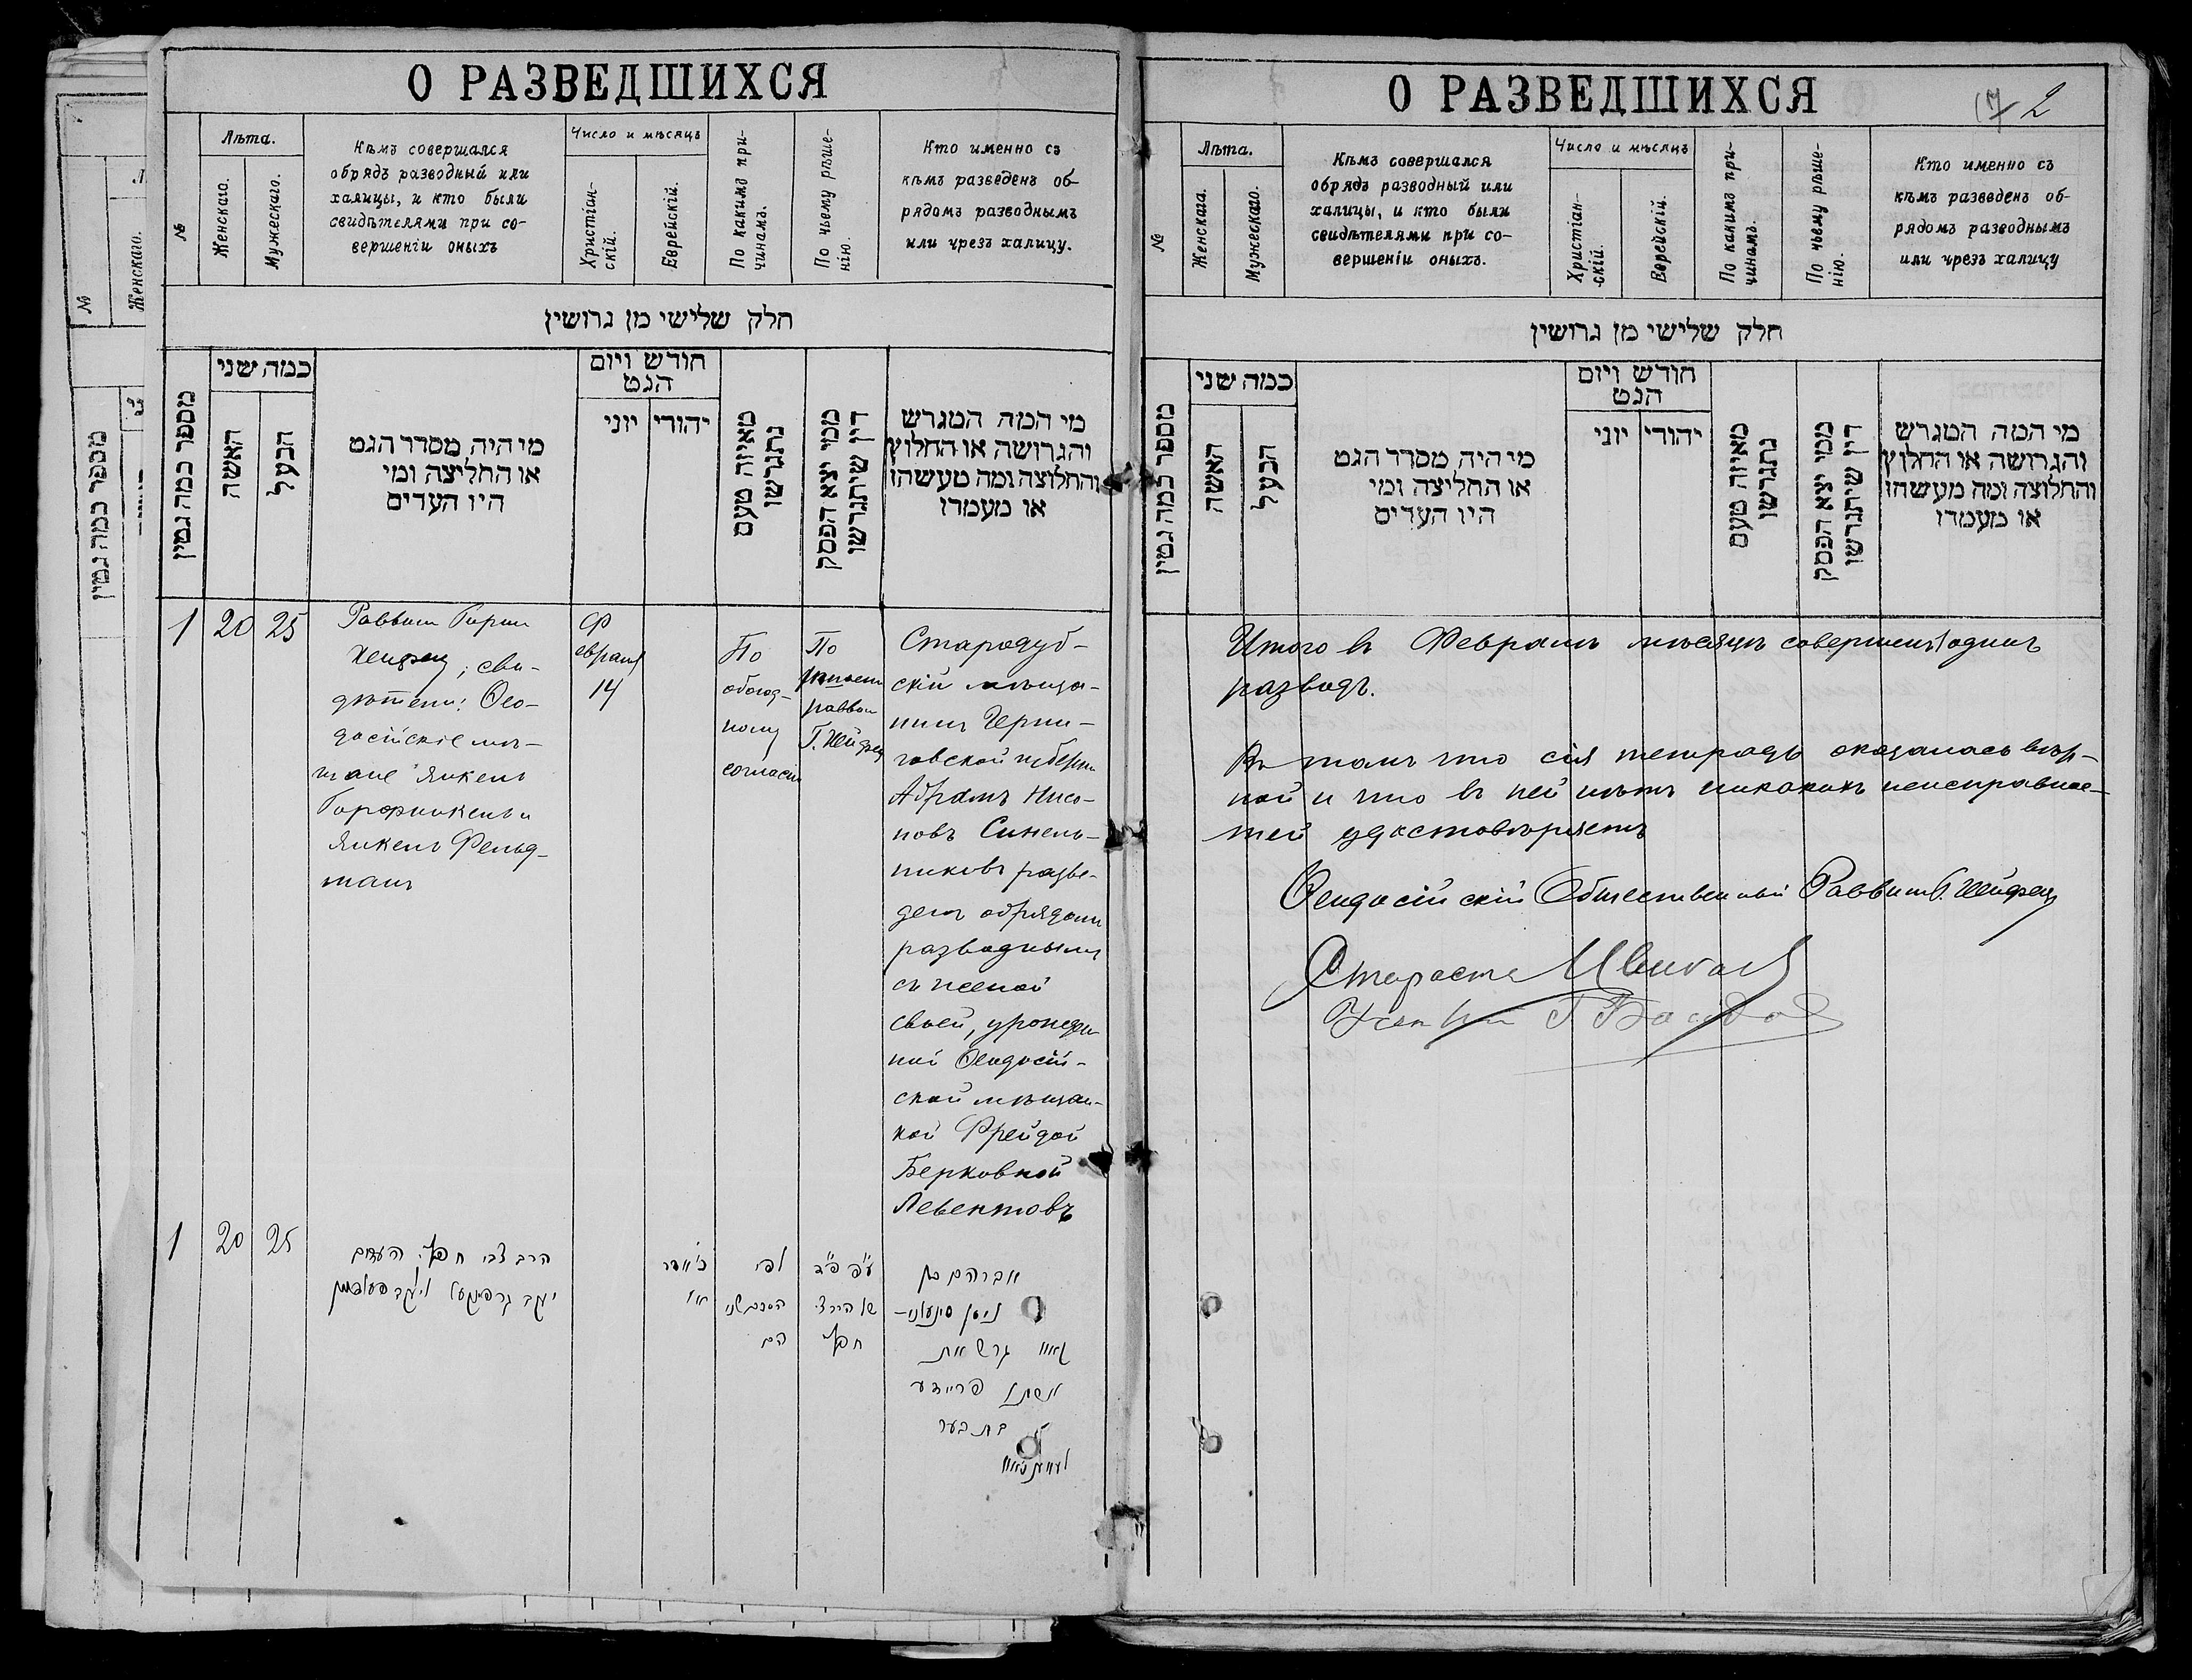 О РАЗВЕДШИХСЯ
№
Лѣта.
Женскаго.
Мужескаго.
Кѣмъ совершался
обрядъ разводный или
халицы, и кто были
свидѣтелями при со-
вершеніи оныхъ
Число и мѣсяцъ
Христіан-
скій.
Еврейскій.
По какимъ при-
чинамъ.
По чьему рѣше-
нію.
Кто именно съ
кѣмъ разведенъ об-
рядомъ разводнымъ
или чрезъ халицу.
חלק שלישי מן גרושין
מספר כמה גטין
כמה שני
האשה
הבעל
מי היה מסדר הגט
או החליצה ומי
היו העדים
חודש ויום
הגט
יוני
יהודי
מאיזה טעם
נתגרשו
ממי יצא הפסק
דין שיתגרשו
מי המה המגרש
והגרושה או החלוץ
והחלוצה ומה מעשהו
או מעמדו
1
20
25
Раввин
Хейфец; сви-
дѣтели: Ѳео-
досійскіе мѣ-
щане Янкель
Горфинкель и
Янкель Фельд-
ман
Ф
евраля
14
По
обоюд-
ному
согласію
По
раввин
Г. Хейфец
Стародуб-
скій мѣща-
нинъ Черни-
говской губерніи
Абрамъ Нисо-
новъ Синель-
никовъ разве-
денъ обрядомъ
разводнымъ
съ женой
своей, урожден
ной Ѳеодосій-
ской мѣщан-
кой Фрейдой
Берковной
Левентовъ
1
20
25
הרב צבי חפץ העדים
יעקב גרפינקעל ויעקב פעלדמאן
לפי
הסכם שני
הם
ע״פ פ״ד
של הירצ
חפץ
אברהם בן
ניסן סינעלני-
קאוו גרש את
אשתו פריידע
בת בער
לעווענטאוו
О РАЗВЕДШИХСЯ
2
№
Лѣта.
Женскаго.
Мужескаго.
Кѣмъ совершался
обрядъ разводный или
халицы, и кто были
свидѣтелями при со-
вершеніи оныхъ.
Число и мѣсяцъ
Христіан-
скій.
Еврейскій.
По какимъ при-
чинамъ.
По чьему рѣше-
нію.
Кто именно съ
кѣмъ разведенъ об-
рядомъ разводнымъ
или чрезъ халицу
חלק שלישי מן גרושין
מספר כמה גטין
כמה שני
האשה
הבעל
מי היה מסדר הגט
או החליצה ומי
היו העדים
חודש ויום
הגט
יוני
יהודי
מאיזה טעם
נתגרשו
ממי יצא הפסק
דין שיתגרשו
מי המה המגרש
והגרושה או החלוץ
והחלוצה ומה מעשהו
או מעמדו
Итого въ Февралѣ мѣсяцѣ совершенъ 1 одинъ
разводъ.
Въ томъ что сія тетрадь оказалась вѣр-
ной и что въ ней нѣтъ никакихъ неисправнос-
тей удостовѣряетъ
Ѳеодосійскій Общественный Раввинъ Г. Хейфец
Староста